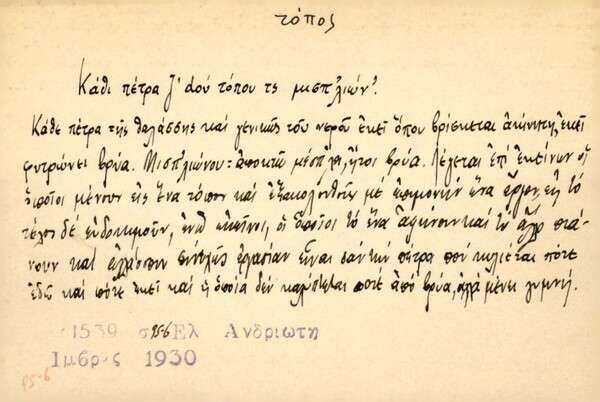 τόπος
Κάθι πέτρα ζ' dού τόπου τς μισπ'λιών'.
Κάθε πέτρα της θαλάσσης και γενικώς του νερού εκεί όπου βρίσκεται ακίνητη, εκεί
φυτρώνει βρύα. Μισπ'λιώνου = αποκτώ μέσπ'λα, ήτοι βρύα. Λέγεται επί εκείνων οι
οποίοι μένουν εις ένα τόπον και εξακολουθούν με επιμονήν ένα έργον, εις το
τέλος δε ευδοκιμούν, ενώ εκείνοι, οι οποίοι το ένα αφήνουν και το άλλο πιά-
νουν και αλλάσσουν συνεχώς εργασίαν είναι σαν την πέτρα που κυλιέται πότε
εδώ και πότε εκεί και η οποία δεν καλύπτεται ποτέ από βρύα, αλλά μένει γυμνή.
1539 σ. 95-6 Ελ Ανδριωτη
Ιμβρος 1930
95-6